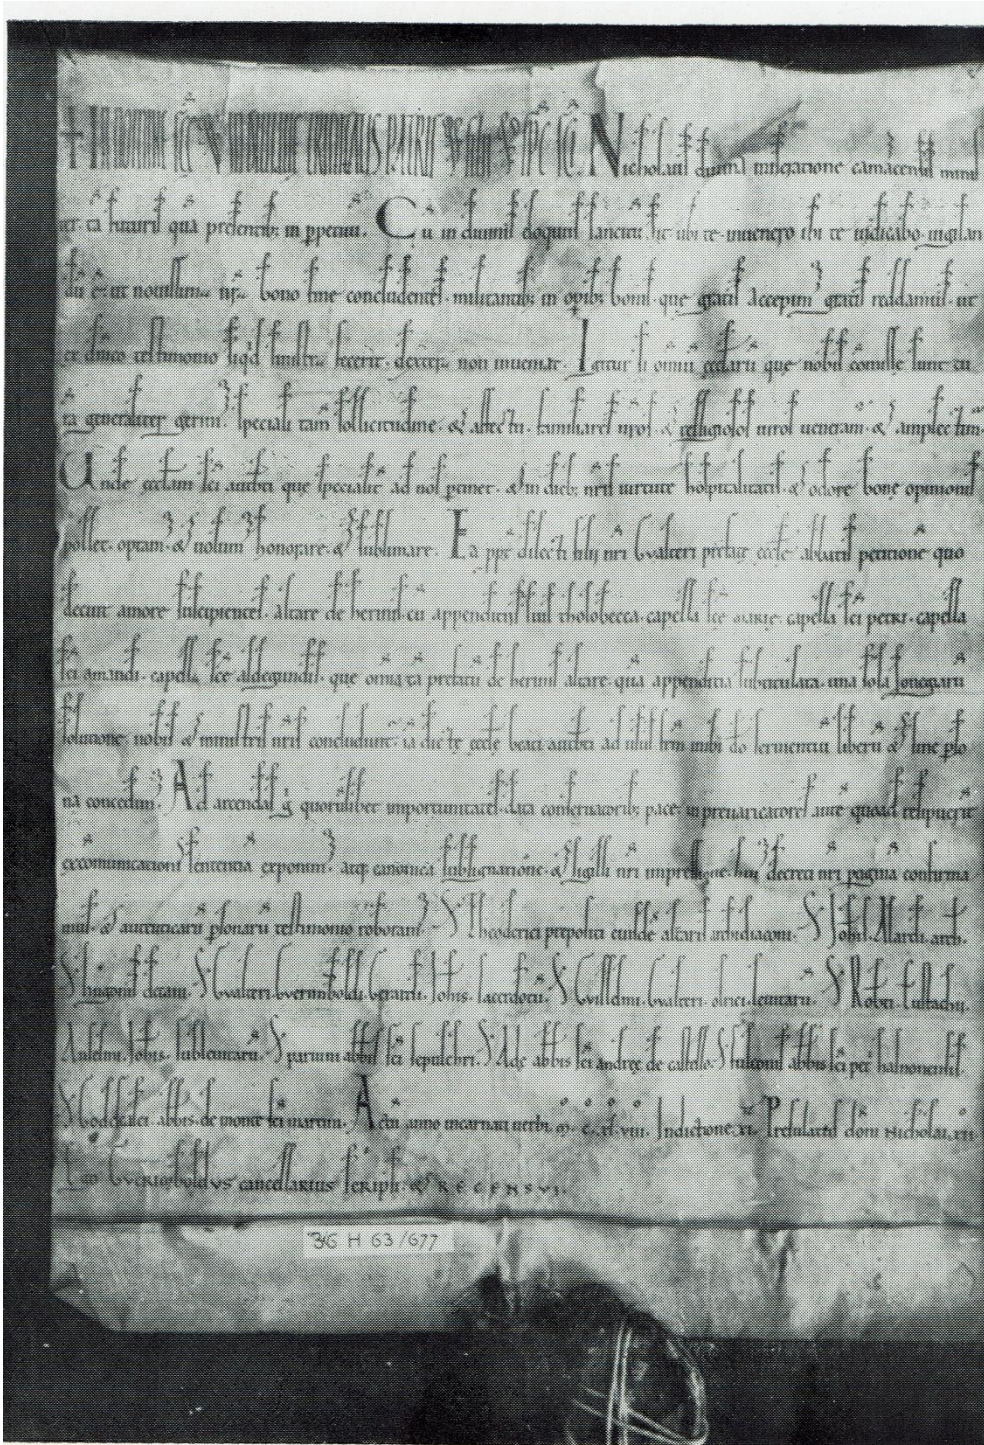 IN NOMINE SCE & INDIVIDUE TRINITATIS PATRIS & FILII & SPC SCI. Nicholaus divina miseratione camacensiu minis
ter. ta futuris qua presentib; in ppetuu. Cu in divinis eloquiis sancitu sit ubi te invenero ibi te iudicabo. vigilan
du e. ut novissima nra bono fine concludentes. militantib; in opib; bonis. que gratis accepim gratis reddamus. ut
ex dnico testimonio siqd sinistra fecerit. dextera non inveniat. Igitur si omniu eccliaru que nobis comisse sunt cu
ra generaliter gerim. speciali tam sollicitudine. & affectu. familiares nros. & religiosos viros veneram. & amplectim.
Unde eccliam sci autbti que specialit ad nos ptinet. & in dieb; nris virtute hospitalitatis. & odore bone opinionis
pollet. optam. & volum honorare. & sublimare. Ea ppt dilecti filii nri Gvalteri prefate eccle abbatis petitione quo
decuit amore suscipientes. altare de herinis cu appenditiis suis tholobecca. capella sce marie. capella sci petri. capella
sci amandi. capella sce aldegundis. que omia ta prefatu de herinis altare. qua appenditia subtitulata. una sola
solutione nobis & ministris nris concludunt. ia dicte eccle beati autbti ad usus frm inibi do servientiu liberu & sine pso
na concedim. Ad arcendas g quorulibet importunitates. data conservatorib; pace. in prevaricatores ante quoad resipuerit
excomunicationis sententia exponim. atq; canonica subsignatione. & sigilli nri impressione. hui decreti nri pagina confirma
mus. & autenticaru psonaru testimonio roboram. S. Theoderici prepositi eiusde altaris archidiaconi. S. Johis. Alardi. arch.
S. hugonis decani. S. Gvalteri. Gverimboldi. Gerardi. Johis. sacerdotu. S. Willelmi. Gvalteri. olrici. levitaru. S. Rotbti. Eustachii.
Anselmi. Johis. subleuitaru. S. parvini abbis sci sepulchri. S. Ade abbis sci andree de castello. S. fulconis abbis sci pet halnonensis.
S. Godescalci. abbis. de monte sci martini. Actu anno incarnati verbi. m. c. xl. viii. Indictione. xi. Presulatus domi Nicholai. xii
Ego Gverimboldus cancellarius scripsi. & RECENSVI.
36 H 63/677